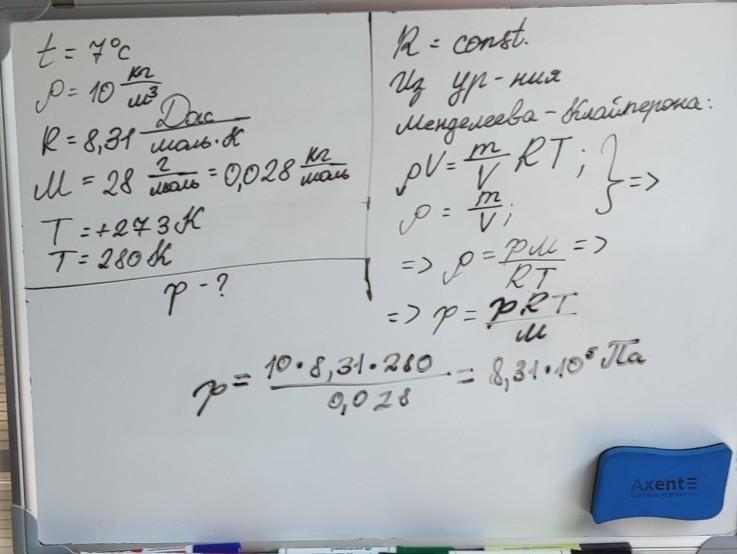 t = 7°C
ρ = 10 кг/м³
R = 8,31 Дж/моль·К
M = 28 г/моль = 0,028 кг/моль
T = +273 К
T = 280 К
p - ?
R = const.
Из ур-ния
Менделеева-Клайперона:
pV = m/V RT; } =>
ρ = m/V;
=> ρ = pM/RT =>
=> p = pRT/M
p = 10·8,31·280/0,028 = 8,31·10⁵ Па
Axent